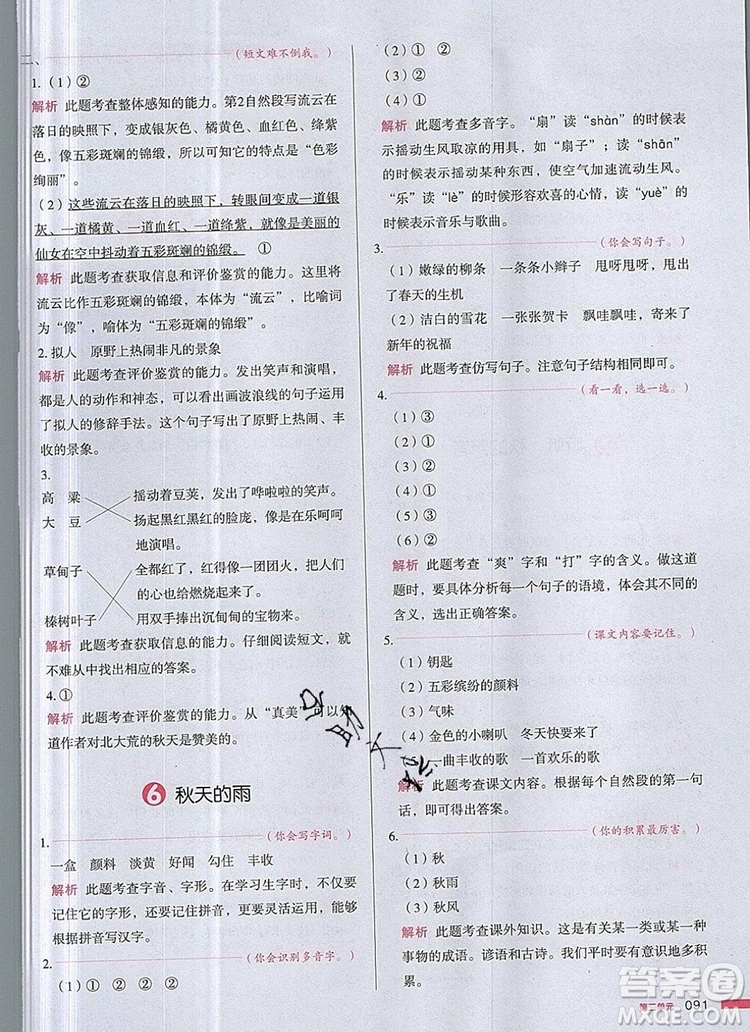 二、
（短文难不倒我。）
1.（1）②
解析 此题考查整体感知的能力。第2自然段写流云在
落日的映照下，变成银灰色、橘黄色、血红色、绛紫
色，像五彩斑斓的锦缎。所以可知它的特点是“色彩
绚丽”。
（2）这些流云在落日的映照下，转眼间变成一道银
灰、一道橘黄、一道血红、一道绛紫，就像是美丽的
仙女在空中抖动着五彩斑斓的锦缎。 ①
解析 此题考查获取信息和评价鉴赏的能力。这里将
流云比作五彩斑斓的锦缎，本体为“流云”，比喻词
为“像”，喻体为“五彩斑斓的锦缎”。
2. 拟人 原野上热闹非凡的景象
解析 此题考查评价鉴赏的能力。发出笑声和演唱，
都是人的动作和神态，所以画波浪线的句子运用
了拟人的修辞手法。这个句子写出了原野上热闹、丰
收的景象。
3.
高 粱 摇动着豆荚，发出了哗啦啦的笑声。
大 豆 扬起黑红黑红的脸庞，像是在乐呵呵
地演唱。
草甸子 红得像一团团火，把人们
的心也给燃烧起来了。
榛树叶子 用双手捧出沉甸甸的宝物来。
解析 此题考查获取信息的能力。仔细阅读短文，就
不难从中找出相应的答案。
4.①
解析 此题考查评价鉴赏的能力。从“真美”可以知
道作者对北大荒的秋天是赞美的。
6 秋天的雨
1.
（你会写字词。）
一盒 颜料 淡黄 好闻 勾住 丰收
解析 此题考查字音、字形。在学习生字时，不仅要
记住它的字形，还要通过拼音来记住它的读音，能够
根据拼音写汉字。
2.
（你会识别多音字。）
（1）① ② ② ②
（2）① ②
（3）② ①
（4）① ②
解析 此题考查多音字。“扇”读“shàn”的时候表
示摇动生风取凉的用具，如“扇子”；读“shān”
的时候表示摇动某种东西，使空气加速流动生风。
“乐”读“lè”的时候形容欢喜的心情，读“yuè”的
时候表示音乐与歌曲。
3.
（你会写句子。）
（1）嫩绿的柳条 一条条小辫子 甩呀甩呀，甩出
了春天的生机
（2）洁白的雪花 一张张贺卡 飘哇飘哇，寄来了
新年的祝福
解析 此题考查仿写句子。注意句子结构相同即可。
4.
（看一看，选一选。）
（1）③
（2）①
（3）②
（4）①
（5）③
（6）②
解析 此题考查“爽”字和“打”字的含义。做这道
题时，要具体分析每一个句子的语境，体会其不同的
含义，选出正确答案。
5.
（课文内容要记住。）
（1）钥匙
（2）五彩缤纷的颜料
（3）气味
（4）金色的小喇叭 冬天快要来了
（5）一曲丰收的歌 一首欢乐的歌
解析 此题考查课文内容。根据每个自然段的第一句
话，即可得出答案。
6.
（你的积累最厉害。）
（1）秋
（2）秋雨
（3）秋风
解析 此题考查课外知识。这是有关某一类或某一种
事物的成语、谚语和古诗。我们平时要有意识地多积
累。
第二单元 091
答案圈
MXQE.COM